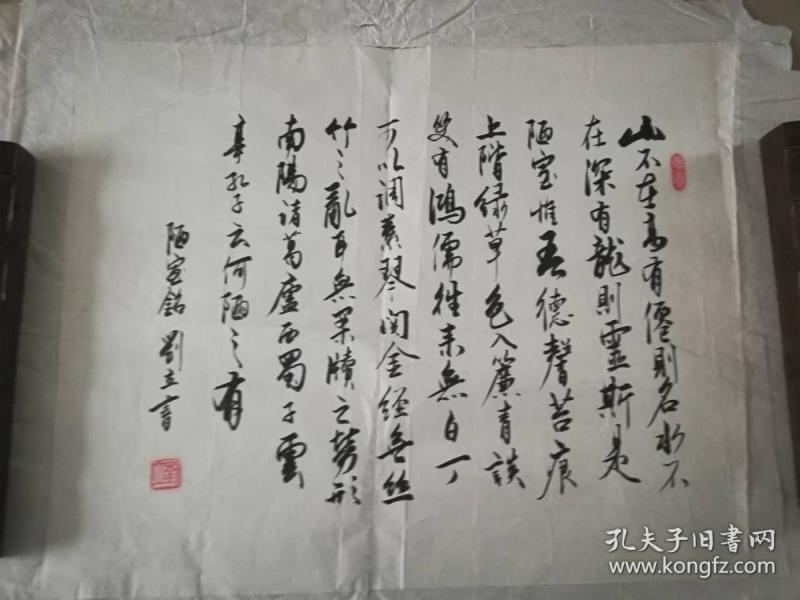 山不在高有僊則名水不
在深有龍則靈斯是
陋室惟吾德馨苔痕
上階绿草色入簾青談
笑有鴻儒往来無白丁
可以调素琴閲金經無絲
竹之亂耳無案牘之勞形
南陽诸葛廬西蜀子雲
亭孔子云何陋之有
陋室銘 劉立書
孔夫子旧书网
www.kongfz.com